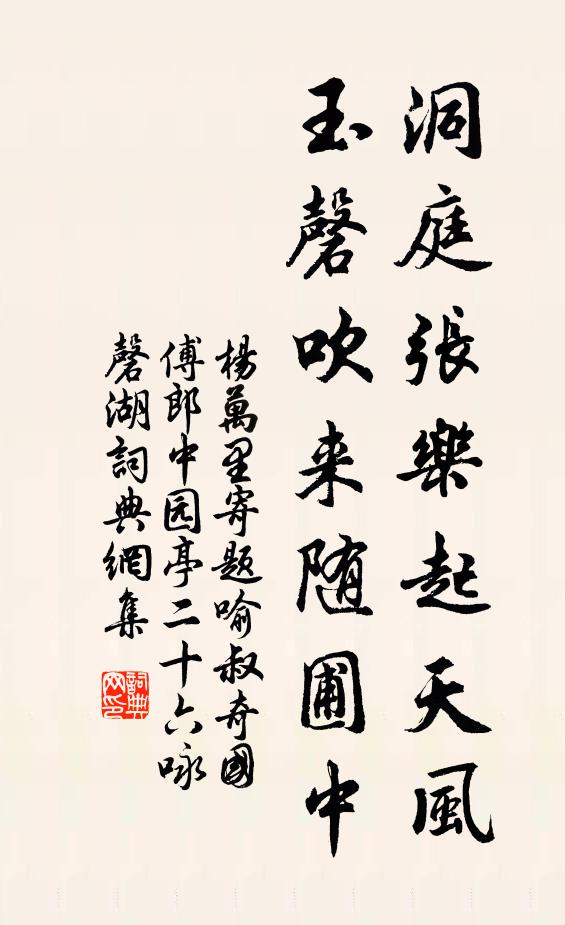 洞庭張樂起天風
玉磬吹来随圃中
楊萬里寄题喻叔奇國
傅郎中园亭二十六咏
磬湖詞典網集
詞典
网印